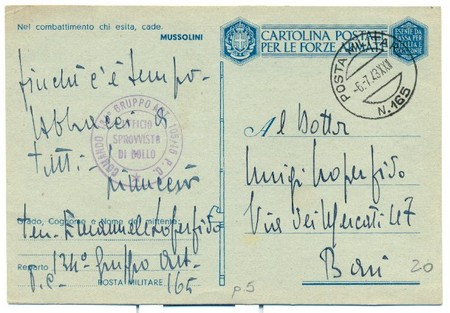 Nel combattimento chi esita, cade.
MUSSOLINI
CARTOLINA POSTALE
PER LE FORZE ARMATE
ESENTE DA
TASSA PER
POSTA MILITARE
-6.7.43 XXI
N. 165
finchè c'è tempo.
Abbracci a
tutti.
COMANDO 134° GRUPPO
UFFICIO
SPROVVISTO
DI BOLLO
Al Dottor
Luigi Loperfido
Via dei Mercati 47
Bari
Grado, Cognome e Nome del mittente:
Ten. Emanuele Loperfido
Reparto 134° Gruppo Art.
P.C.
POSTA MILITARE 165
p5
20